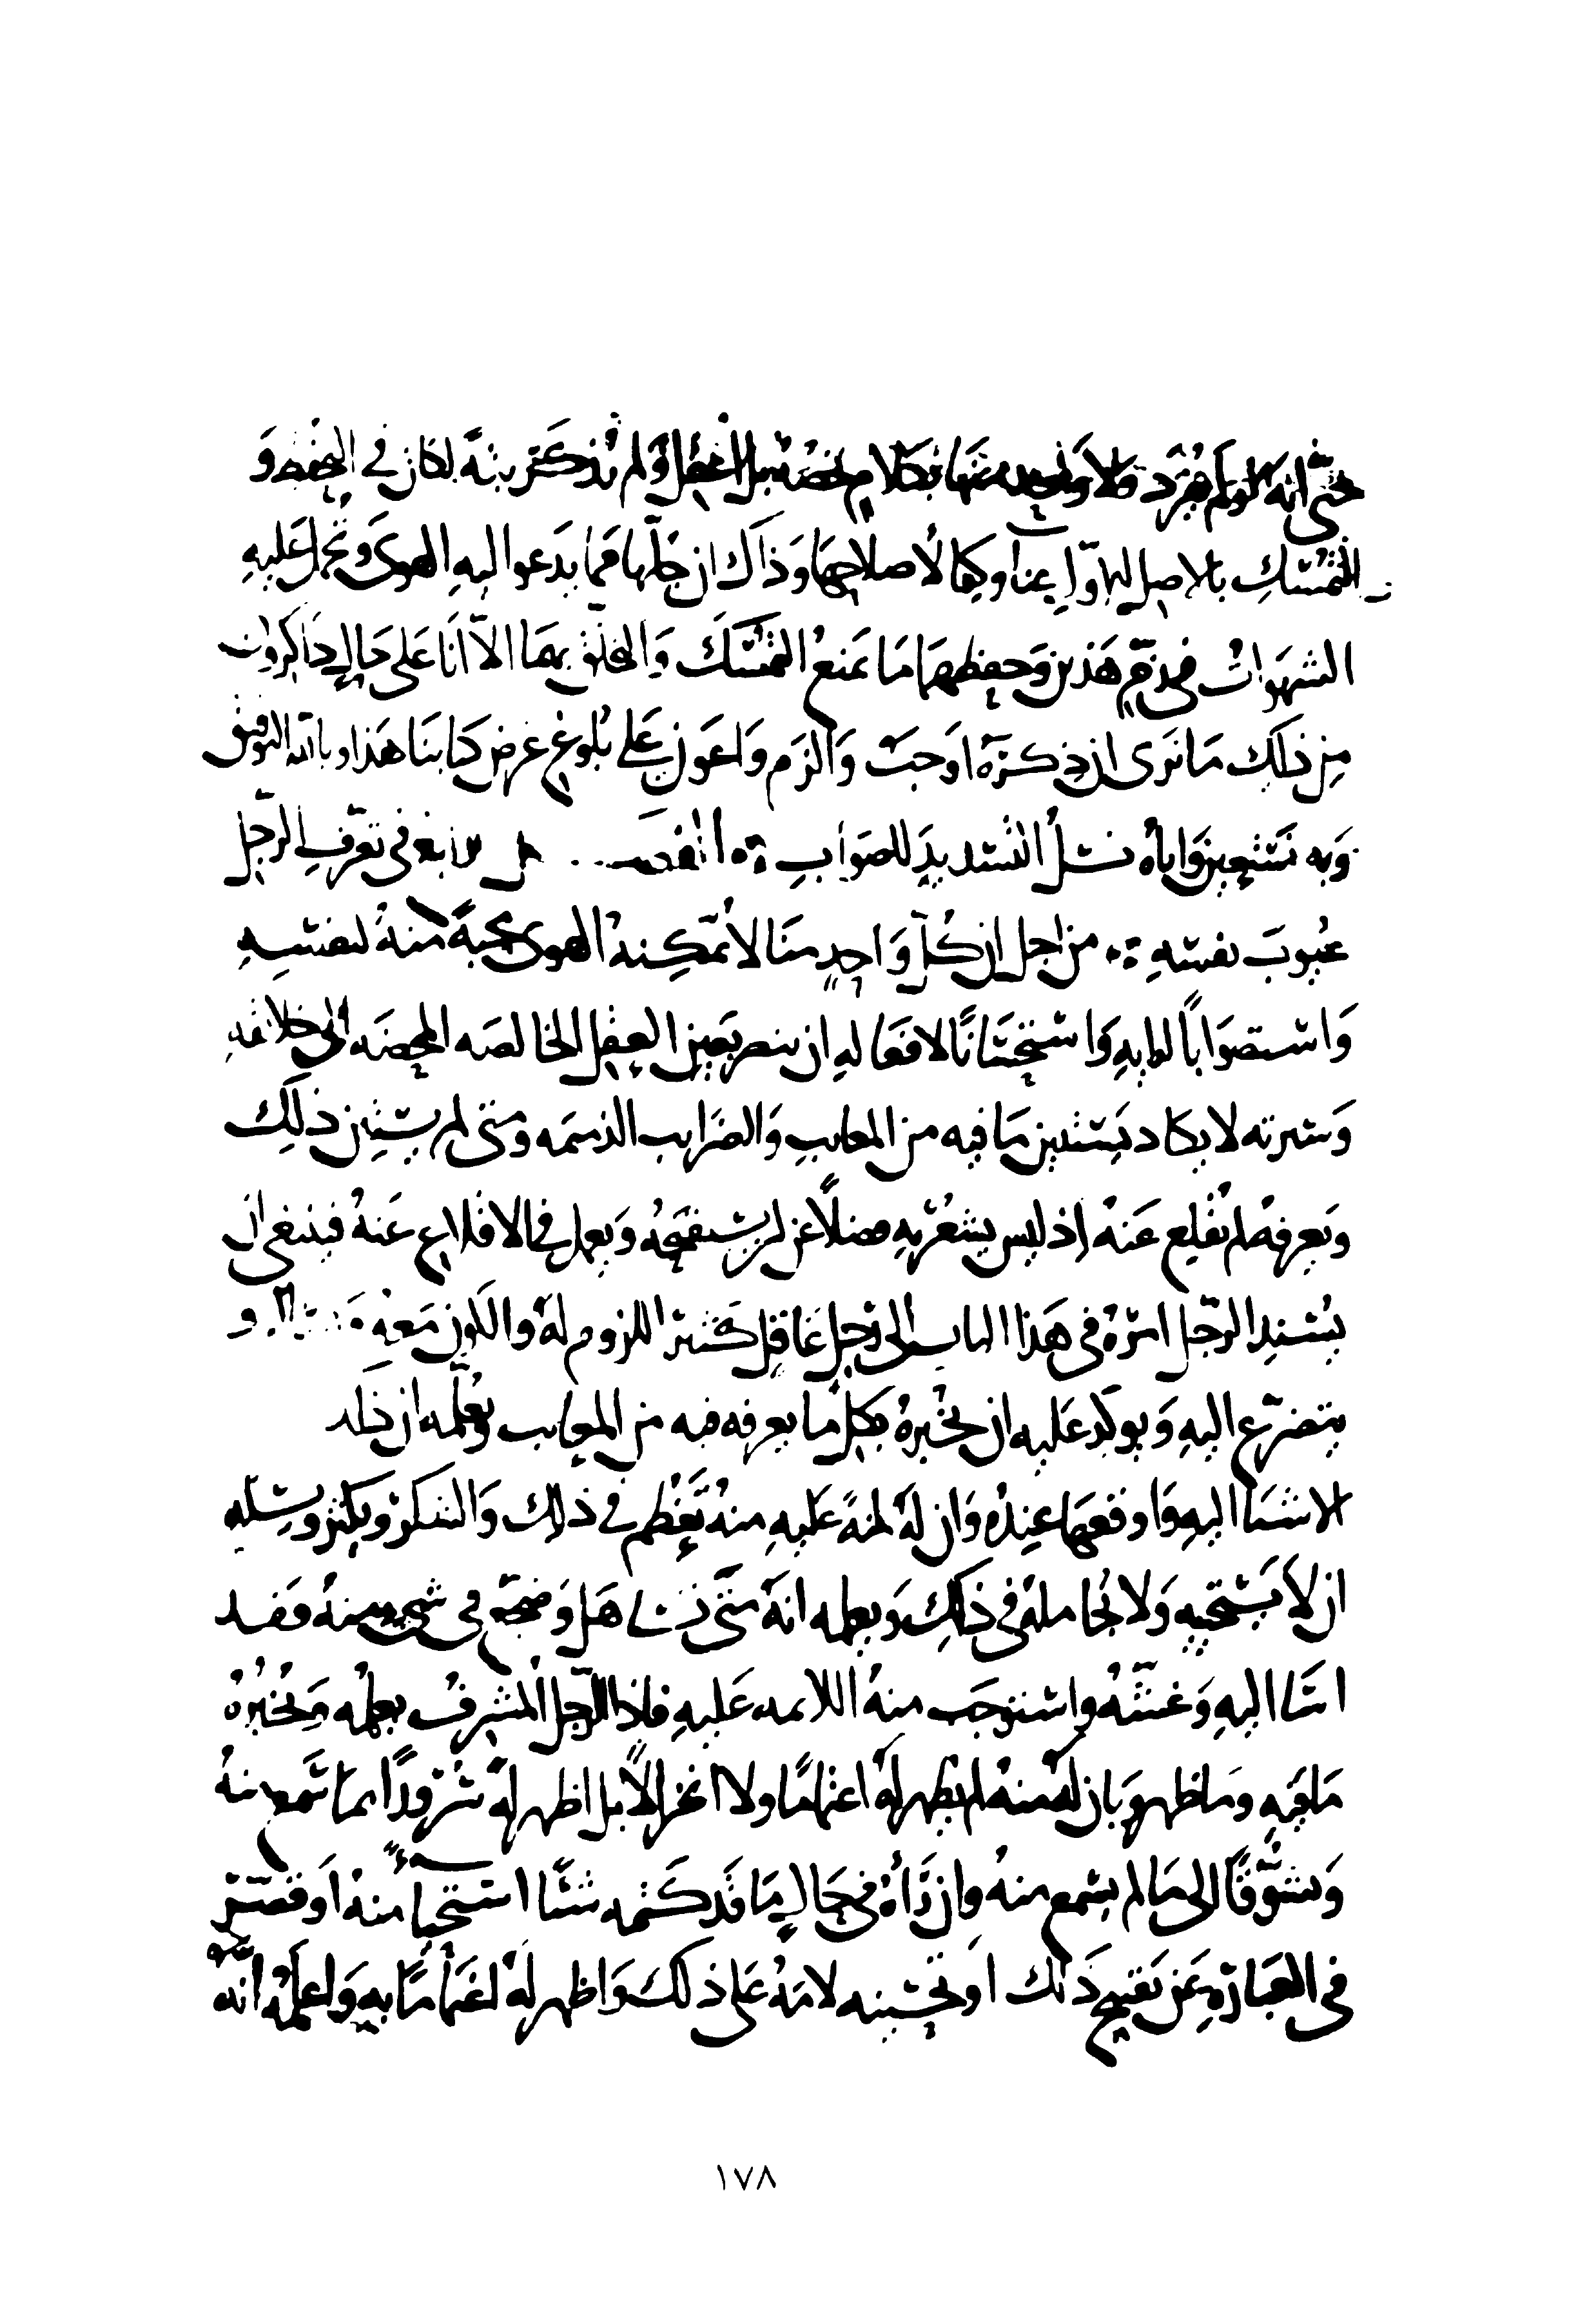 حتى انه لو لم نفرد ولا واحده منها بكلام يخصه بل اغفل ولم نذكر بتة لكان في التحفظ و
التمسك بالاصل الاول عنا وكمالا صلاحها وذاك ان جلها مما يدعوا اليه الهوى وتحمل عليه
الشهوات في ذم هذين وحفظهما ما يمنع التمسك والتخلق بهما الا انا على حال ذاكرون
من ذلك ما نرى ان ذكره اوجب والزم واعون على بلوغ غرض كتابنا هذا وبالله التوفيق
وبه نستعين واياه نسل التسديد للصواب الفصل الرابع في تعرف الرجل
عيوب نفسه من اجل ان كل واحد منا لا يمكنه الهوى محبة منه لنفسه
واستصوابا لها به واستحسانا لافعاله ان ينظر بعين العقل الخالصه المحضه الى خلائقه
وسيرته لا يكاد يستبين ما فيه من المعايب والضرايب الذميمه ومتى لم يستبن ذلك
ويعرفه لم يقلع عنه اذ ليس يشعر به فضلا عن ان يستقبحه ويعمل في الاقلاع عنه فينبغي ان
يسند الرجل امره في هذا الباب الى رجل عاقل كثير اللزوم له والكون معه و
يتضرع اليه ويوكد عليه ان يخبره بكل ما يعرفه فيه من المعايب ويعلمه ان ذلك
الاشيا اليه واوقعها عنده وان له لمنة عليه منه تعظم في ذلك والشكر ويكثر ويسله
ان لا يستحييه ولا يجامله في ذلك ويعلمه انه متى تساهل وضجع في شي منه فقد
اسا اليه وغشه واستوجب منه اللايمه عليه فاذا الرجل المشرف يعلمه ويخبره
ما فيه وما ظهر وبان له منه لم يظهر له اغتماما ولا انخزالا بل اظهر له سرورا بما سمع منه
وتشوقا الى ما لم يسمع منه وان رآه في حال ما قد كتمه شيئا استحياء منه او قصر
في العبارة عن تقبيح ذلك او تحسينه لامه على ذلك واظهر له اغتماما به واعلمه انه
١٧٨